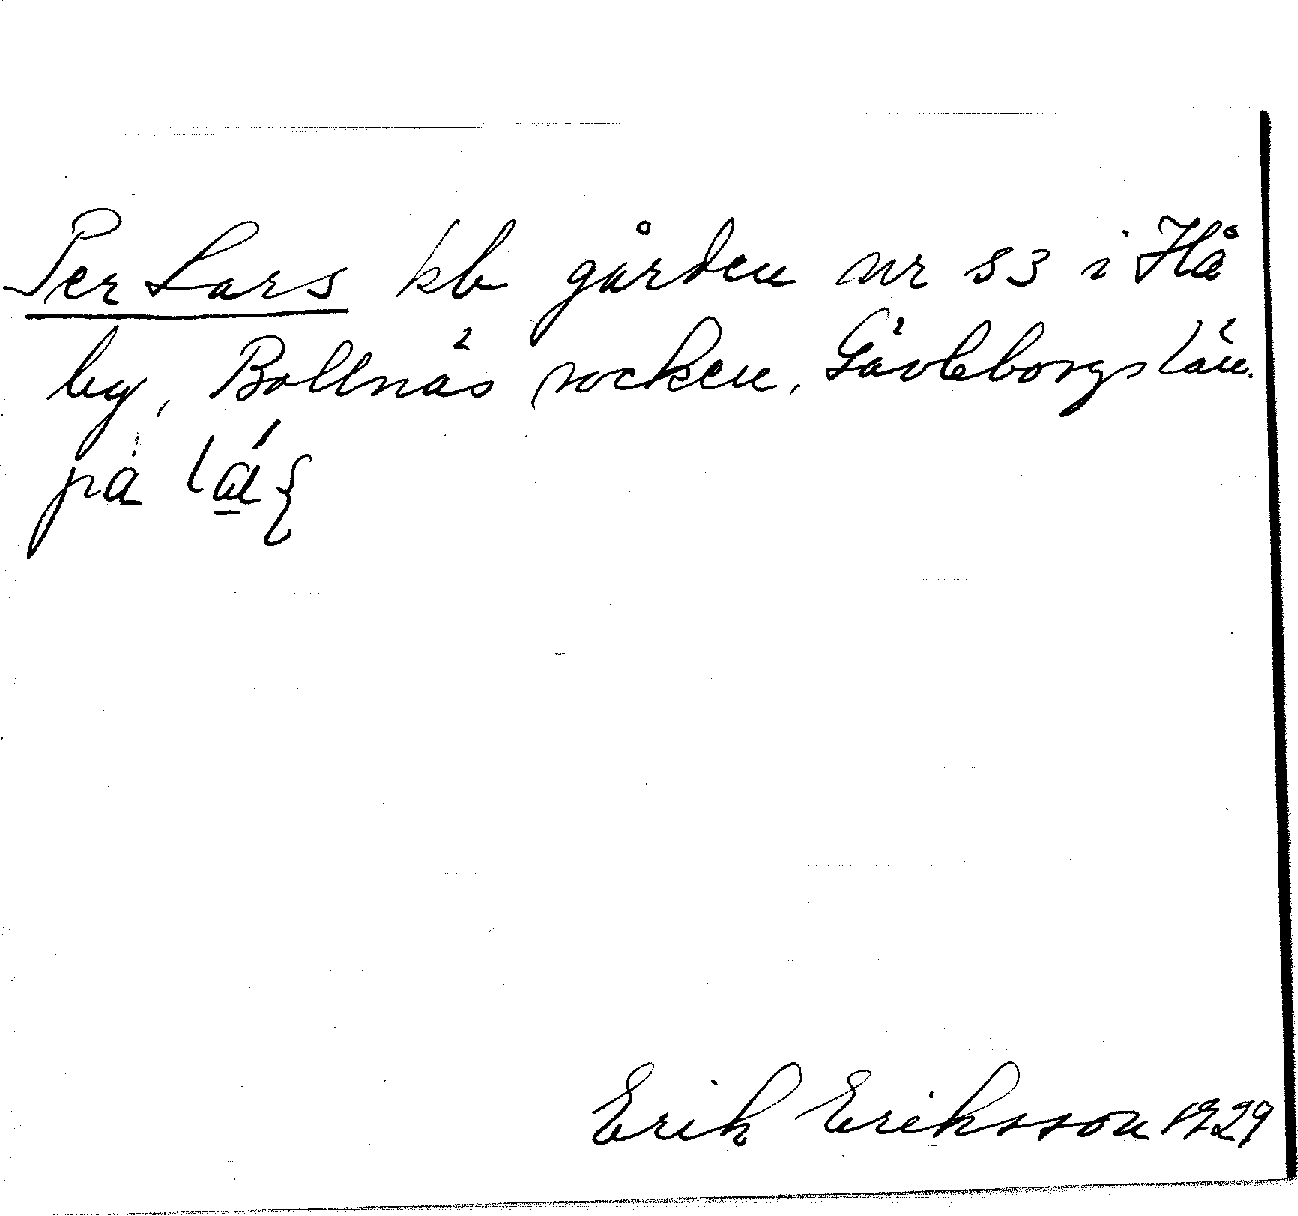 Per Lars kb gården nr 83 i Hå
by, Bollnäs socken, Gävleborgs län.
på
Erik Eriksson 1929